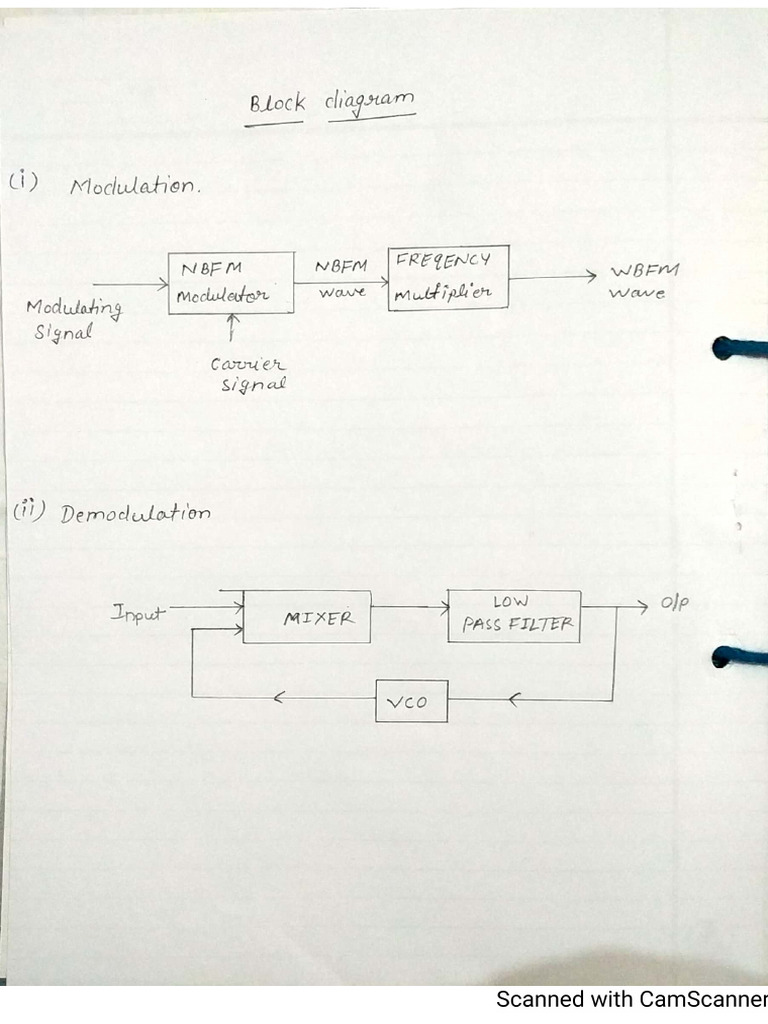 Block diagram
(i) Modulation.
Modulating
Signal
NBFM
Modulator
Carrier
signal
NBFM
wave
FREQENCY
Multiplier
WBFM
wave
(ii) Demodulation
Input
MIXER
LOW
PASS FILTER
O/P
VCO
Scanned with CamScanner